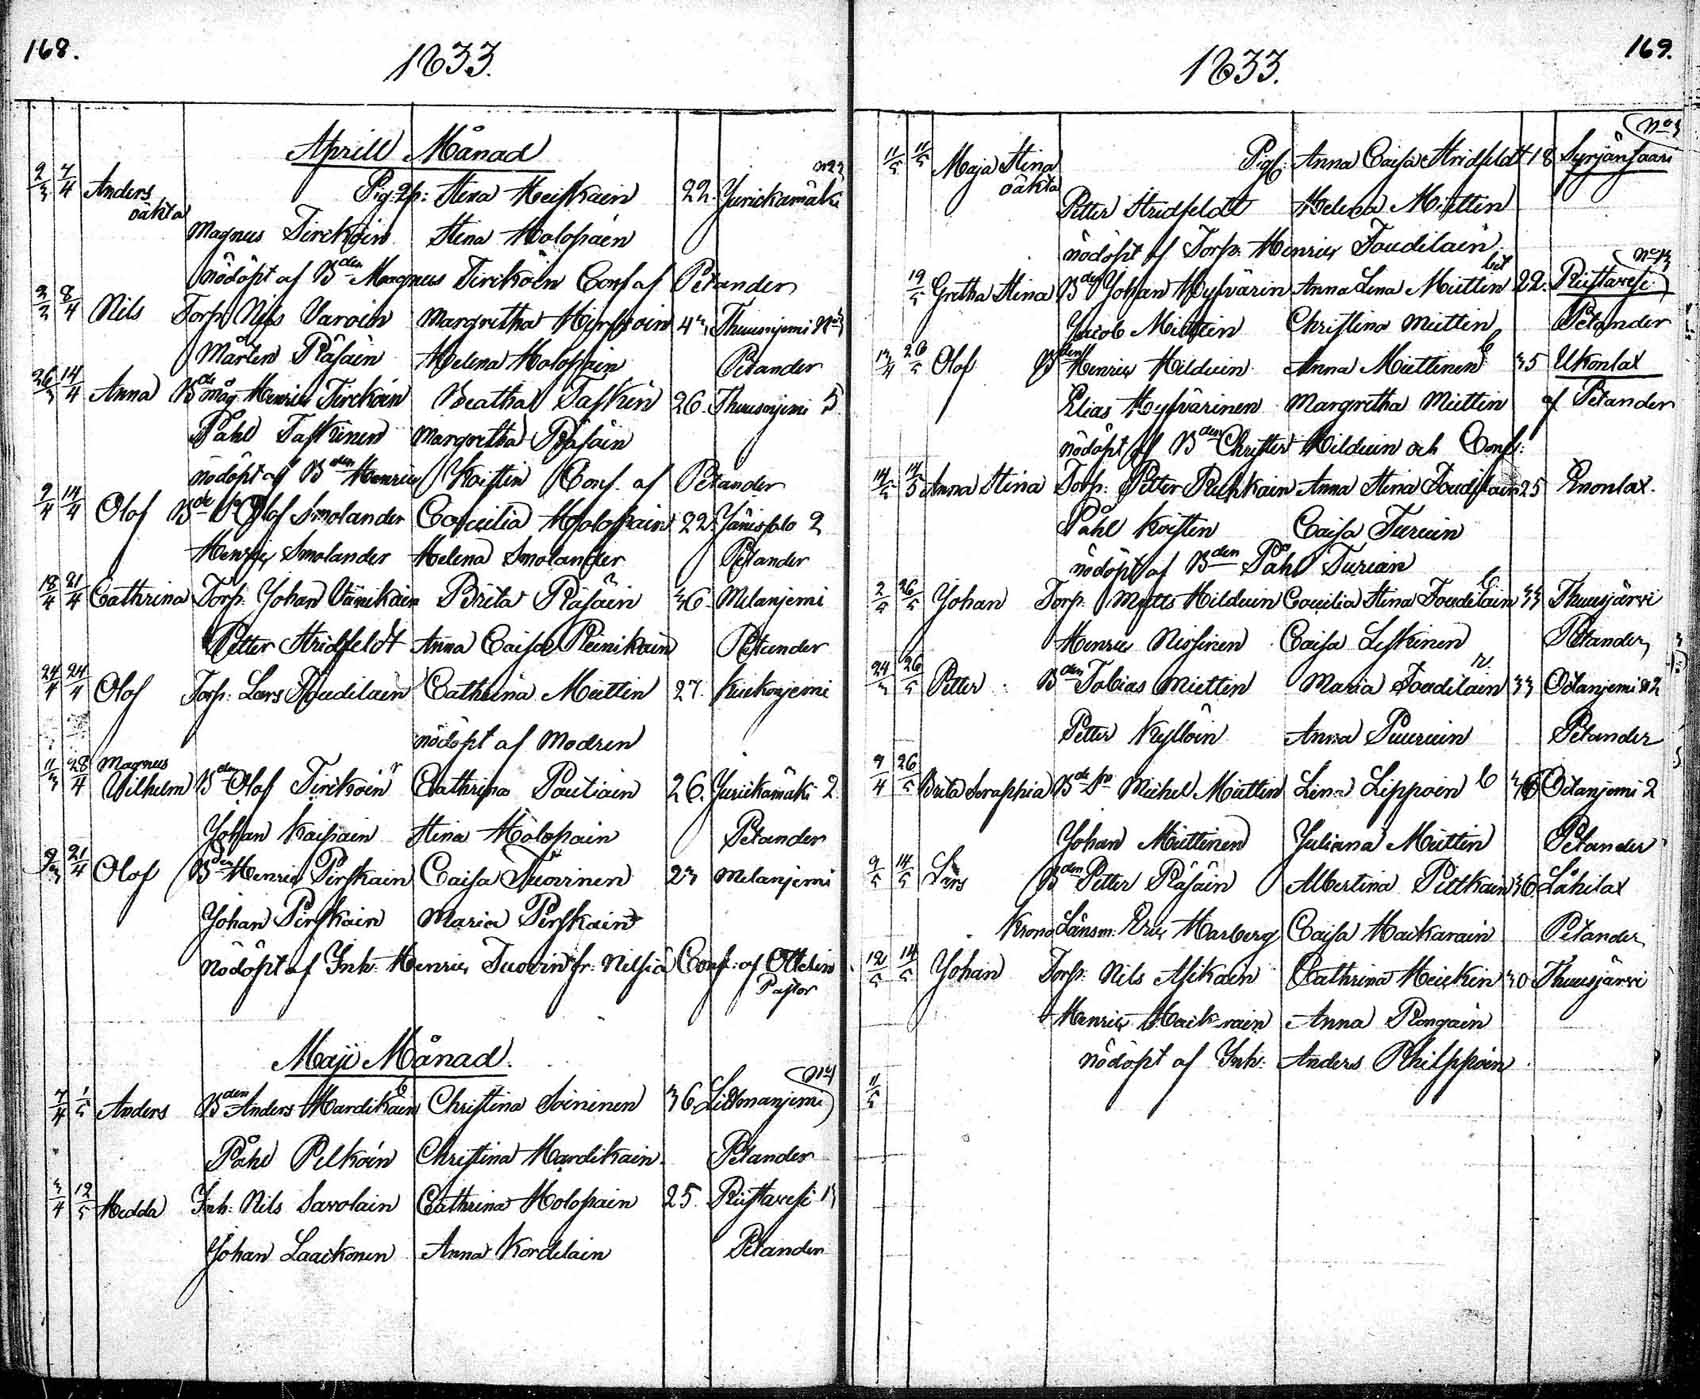 168.
1833.
Aprill Månad
2/3 7/4 Anders Pig. Stina Heiskain 22. Jurickamäki
oäkta
Magnus Tirckoin Stina Holopain
nödöpt af Bden Magnus Tirikoin Conf af Petander
3/2 8/4 Nils Torp: Nils Varoin Margretha Hirfwoin Thuusnjemi
Mårten Räsain Helena Holopain Petander
26/3 14/4 Anna Bde måg Henric Tirckoin Beatha Taskin 26. Thuusnjemi 5.
Påhl Taskinen Margretha Räsain
nödöpt af Bden Henric Koistin Conf. af Petander
9/4 14/4 Olof Bde Olof Smolander Coecilia Holopain 22. 2
Henric Smolander Helena Smolander Petander
18/4 21/4 Cathrina Torp. Johan Vänikäin Brita Räsäin 36. Melanjemi
Petter Stridfeldt Anna Caisa Reinikain Petander
24/4 24/4 Olof Torp: Lars Toudilain Cathrina Miettin 27. Kuckonjemi
nödöpt af Modren
Magnus
11/3 28/4 Wilhelm Bden Olof Tirikoin Cathrina Poutiain 26. Jurickamäki 2
Johan Kaipain Stina Holopain Petander
9/3 21/4 Olof Bden Henric Pirskain Caisa Tuovinen 23 Melanjemi
Johan Pirskain Maria Pirskain
nödöpt af Inh: Henric Tuovin fr: Nilsiä Conf: af Ottelin
Pastor
Maji Månad.
7/4 1/5 Anders Bden Anders Hardikain Christina Soininen 36 Litmanjemi
Påhl Pelkoin Christina Hardikain Petander
3/4 12/5 Hedda Inh: Nils Savolain Cathrina Holopain 25. Riistavesi 13
Johan Laackonen Anna Kordelain Petander
169.
1833.
11/5 11/5 Maja Stina Pig: Anna Caisa Stridfeldt 18 Syrjänsaari
oäkta
Petter Stridfeldt Helena Miettin
nödöpt af Torp. Henric Toudilain.
19/5 Gretha Stina Bden Johan Hyfvärin Anna Lena Miettin 22. Riistavesi
Jacob Miettin Christina Miettin Petander
13/4 26/5 Olof Bden Henric Hilduin Anna Miettinen 35 Ukonlax
Elias Hyfvärinen Margretha Miettin af Petander
nödöpt af Bden Christer Hilduin och Conf:
14/5 14/5 Anna Stina Torp: Petter Ruhkain Anna Stina Toudilain 25 Enonlax.
Påhl Koistin Caisa Turuin
nödöpt af Bden Påhl Turian
2/5 26/5 Johan Torp. Matts Hilduin Coecilia Stina Toudilain 33 Thuusjärvi
Henric Nissinen Caisa Leskinen Petander
24/3 26/5 Petter Bden Tobias Miettin Maria Toudilain 33 Ostanjemi 2
Petter Kylloin Anna Puuruin Petander
9/4 26/5 Brita Seraphia Bde So Michel Miettin Lena Lippoin 36 Ostanjemi 2
Johan Miettinen Juliana Miettin Petander
9/5 14/5 Lars Bden Petter Räsäin Albertina Pitkain 36. Låhilax
Krono Länsm: Eric Harberg Caisa Hackarain Petander
12/5 14/5 Johan Torp. Nils Asikain Cathrina Heickin 30 Thuusjärvi
Henric Anna Rongain
nödöpt af Inh: Anders Philppoin
11/5